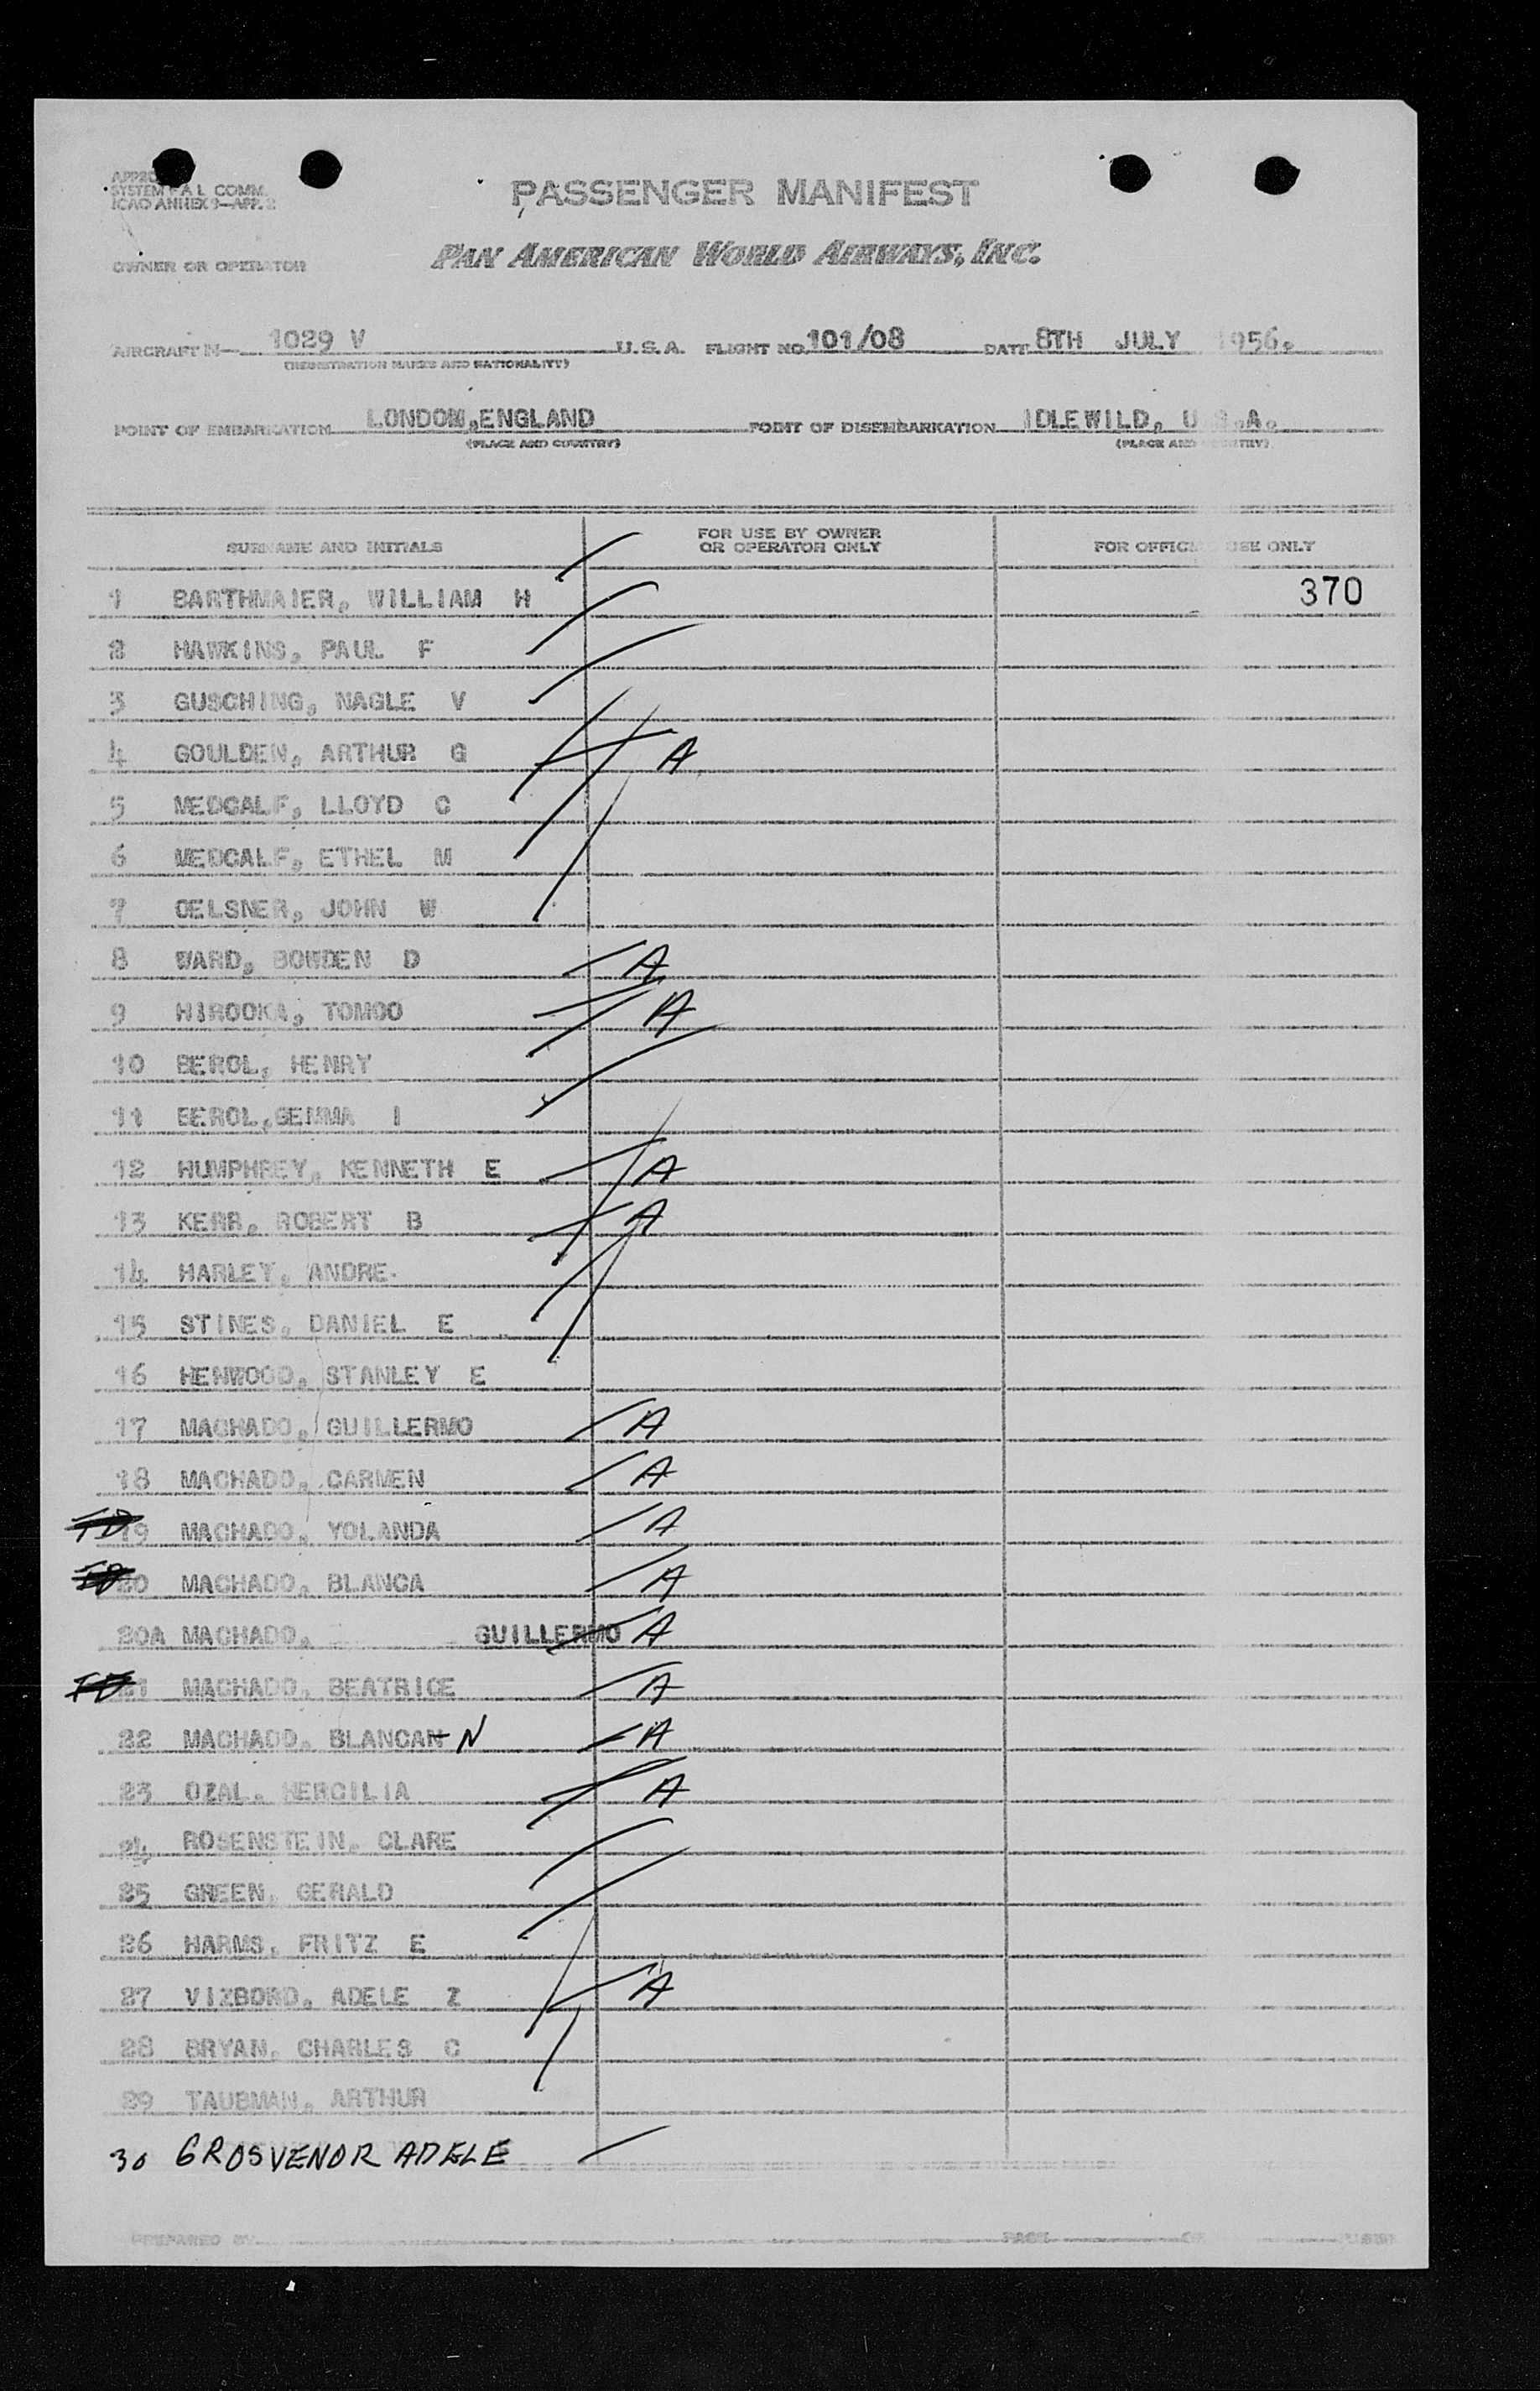 SYSTEM F A L COMM.
ICAO ANNEX 9—APP. 2
PASSENGER MANIFEST
OWNER OR OPERATOR
PAN AMERICAN WORLD AIRWAYS, INC.
AIRCRAFT N— 1029 V U.S.A. FLIGHT NO. 101/08 DATE 8TH JULY 1956.
(REGISTRATION MARKS AND NATIONALITY)
POINT OF EMBARKATION LONDON, ENGLAND POINT OF DISEMBARKATION IDLEWILD, U.S.A.
(PLACE AND COUNTRY) (PLACE AND COUNTRY)
SURNAME AND INITIALS FOR USE BY OWNER OR OPERATOR ONLY FOR OFFICIAL USE ONLY
1 BARTHMAIER, WILLIAM H 370
2 HAWKINS, PAUL F
3 GUSCHING, NAGLE V
4 GOULDEN, ARTHUR G A
5 MEDCALF, LLOYD C
6 MEDCALF, ETHEL M
7 OELSNER, JOHN W
8 WARD, BOWDEN D A
9 HIROOKA, TOMOO A
10 BEROL, HENRY
11 BEROL, GEMMA I
12 HUMPHREY, KENNETH E A
13 KERR, ROBERT B A
14 HARLEY, ANDRE.
15 STINES, DANIEL E
16 HENWOOD, STANLEY E
17 MACHADO, GUILLERMO A
18 MACHADO, CARMEN A
19 MACHADO, YOLANDA A
20 MACHADO, BLANCA A
20A MACHADO, GUILLERMO A
21 MACHADO, BEATRICE A
22 MACHADO, BLANCAN N A
23 OZAL, HERCILIA A
24 ROSENSTEIN, CLARE
25 GREEN, GERALD
26 HARMS, FRITZ E
27 ADELE Z A
28 BRYAN, CHARLES C
29 TAUBMAN, ARTHUR
30 GROSVENOR ADELE
PREPARED BY PAGE OF